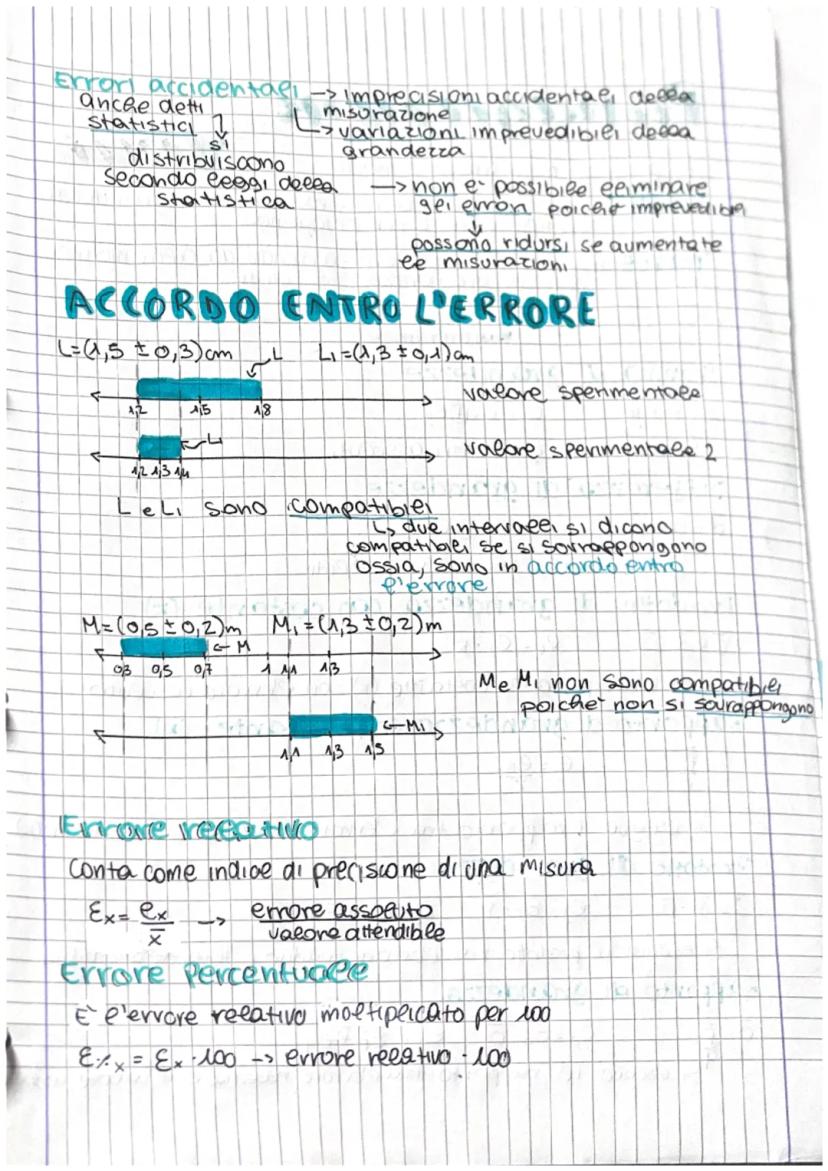 Errori accidentali -> imprecisioni accidentali della
misurazione
anche detti
statistici
↳ variazioni imprevedibili della
grandezza
si
distribuiscono
secondo leggi della
statistica
-> non è possibile eliminare
gli errori poiché imprevedibili
possono ridursi se aumentate
le misurazioni
ACCORDO ENTRO L'ERRORE
L=(1,5 ± 0,3)cm L L₁=(1,3 ± 0,1)cm
valore sperimentale
1,2 1,5 1,8
L₁
valore sperimentale 2
1,2 1,3 1,4
L e L₁ sono compatibili
↳ due intervalli si dicono
compatibili se si sovrappongono
ossia, sono in accordo entro
l'errore
M=(0,5 ± 0,2)m M₁=(1,3 ± 0,2)m
← M
0,3 0,5 0,7 1 1,1 1,3
M e M₁ non sono compatibili
poiché non si sovrappongono
← M₁
1,1 1,3 1,5
Errore relativo
Conta come indice di precisione di una misura
Ɛx = ex/x̄ -> errore assoluto/valore attendibile
Errore percentuale
E' l'errore relativo moltiplicato per 100
Ɛ%x = Ɛx · 100 -> errore relativo · 100